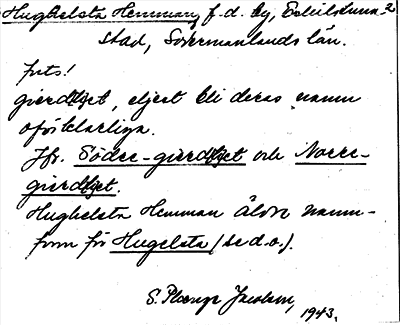 Hughelsta Hemman, f.d. by, Eskilstuna
stad, Södermanlands län.
Juts!
gierdhet, eljest bli deras namn
oförklarliga.
Jfr. Söder-gierdhet och Norre-
gierdhet.
Hughelsta Hemman Äldre namn-
form för Hugelsta (se d.o.).
S. Jacobsen, 1943.